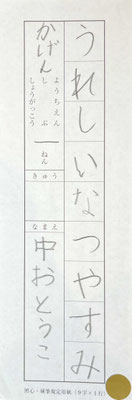 うれしいなつやすみ
かげん
ようちえん
しぶ
しょうがっこう
一ねん
きゅう
なまえ
中おとうこ
硬筆規定用紙(9字×1行)